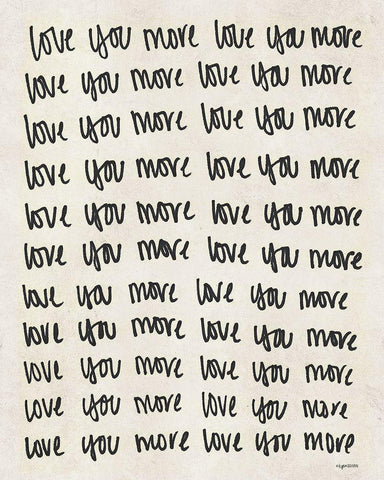 love you more love you more
love you more love you more
love you more love you more
love you more love you more
love you more love you more
love you more love you more
love you more love you more
love you more love you more
love you more love you more
love you more love you more
love you more love you more